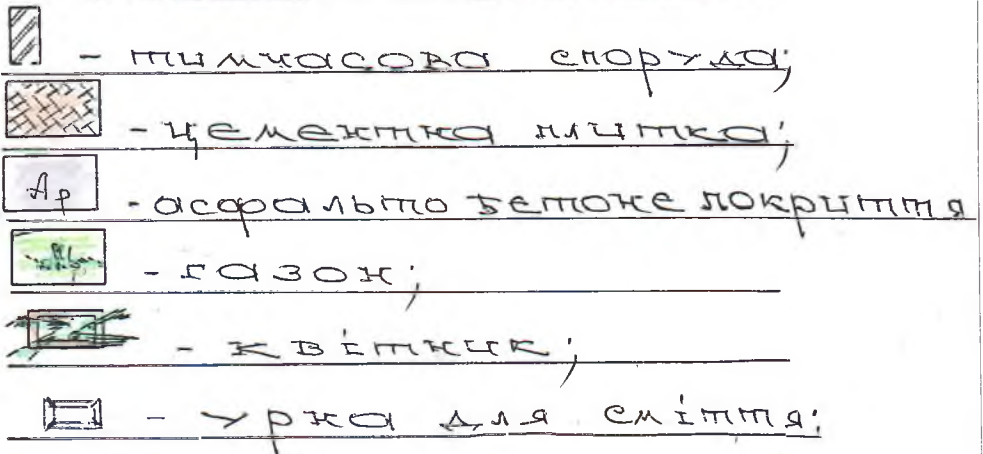 - тимчасова споруда;
- цементна плитка;
Ар - асфальто бетоне покриття
- газон;
- квітник;
- урна для сміття: